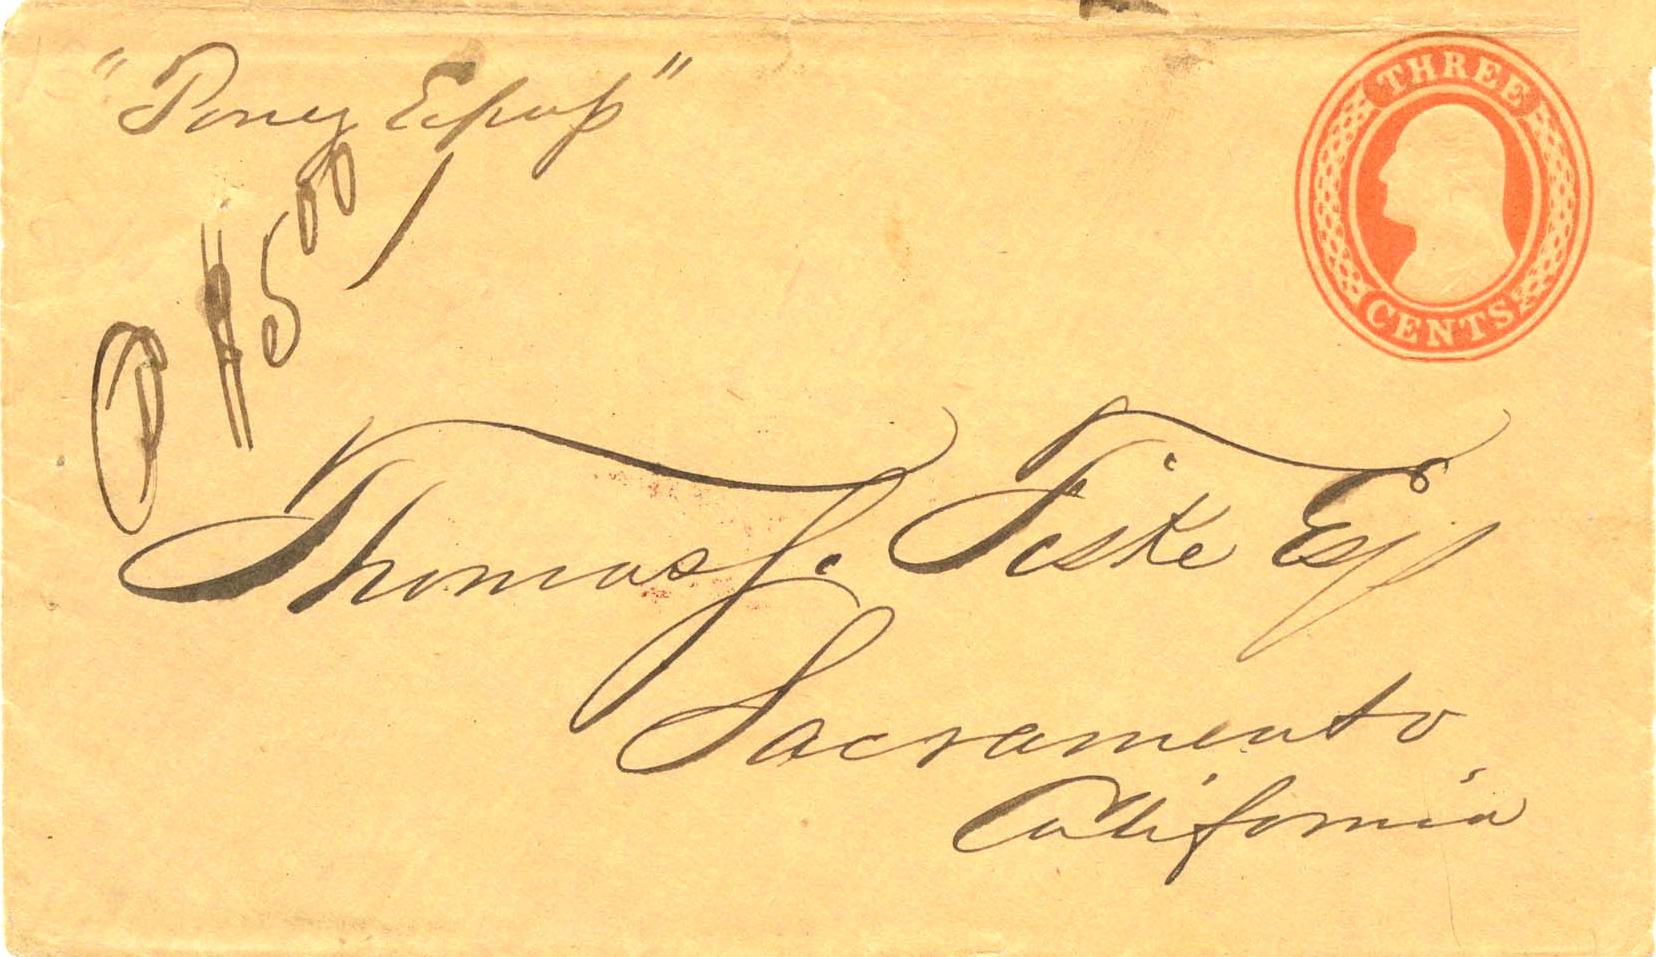 "Poney Express"
THREE
CENTS
P $5 00/
Thomas J. Fiske Esq
Sacramento
California